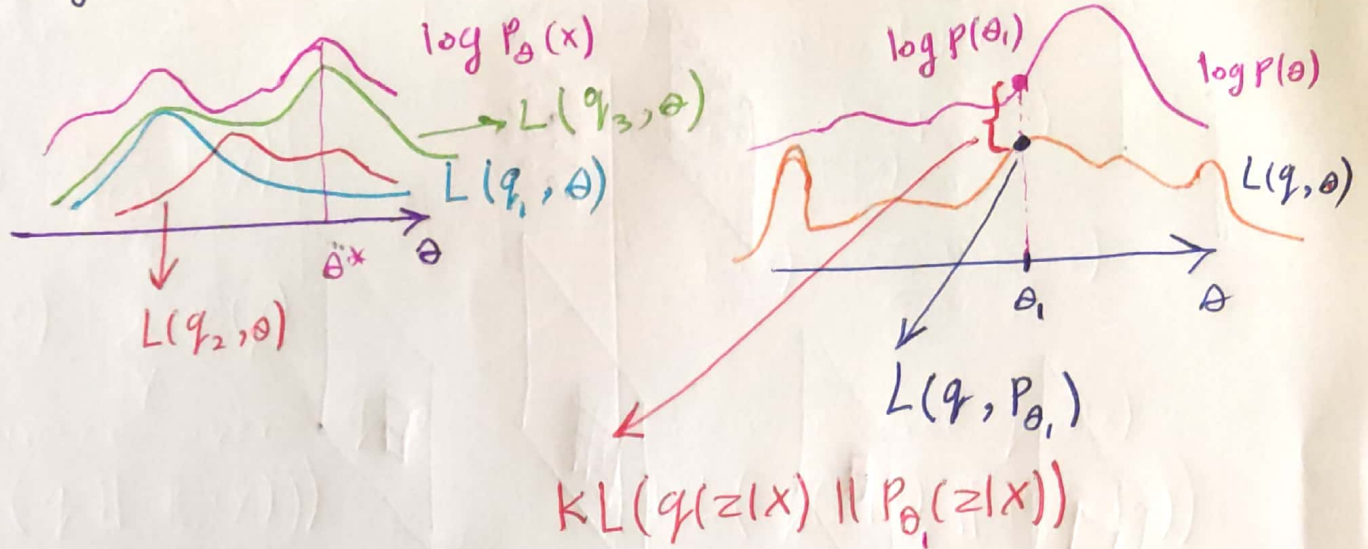 log P_θ(x)
L(q_3, θ)
L(q_1, θ)
θ* θ
L(q_2, θ)
log p(θ_1)
log p(θ)
L(q, θ)
θ_1 θ
L(q, P_θ_1)
KL(q(z|x) || P_θ_1(z|x))